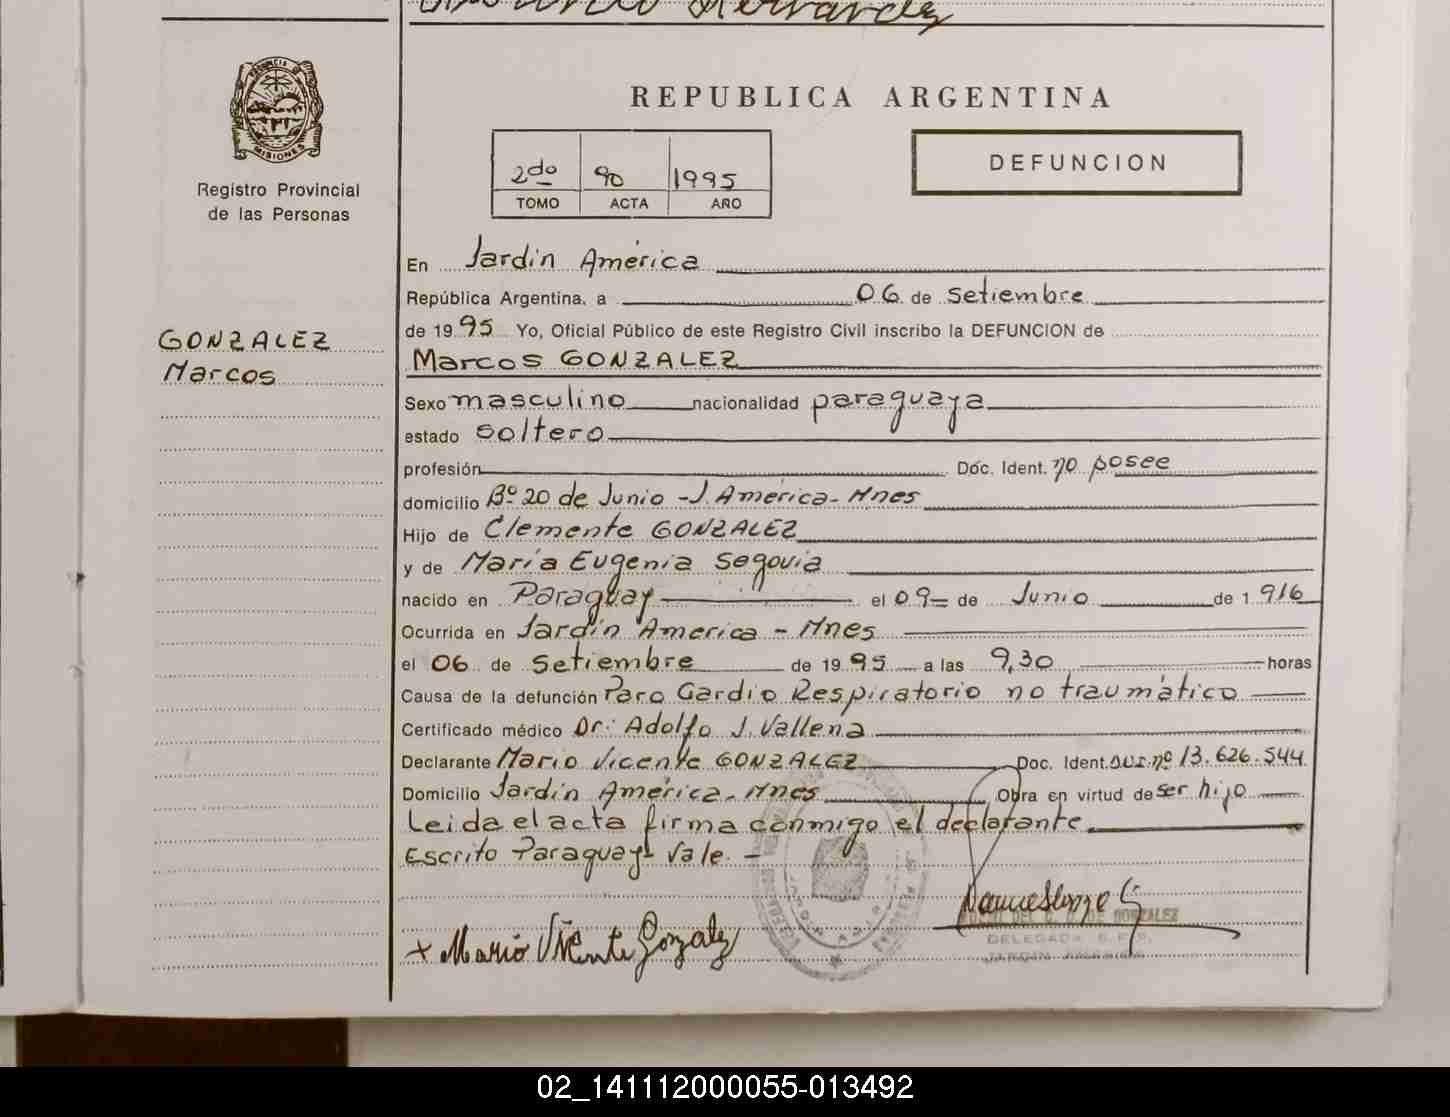 Hernandez
PROVINCIA DE
MISIONES
Registro Provincial
de las Personas
GONZALEZ
Marcos
REPUBLICA ARGENTINA
2do 90 1995
TOMO ACTA AÑO
DEFUNCION
En Jardín América
República Argentina, a 06 de setiembre
de 1995 Yo, Oficial Público de este Registro Civil inscribo la DEFUNCION de
Marcos GONZALEZ
Sexo masculino nacionalidad paraguaya
estado soltero
profesión Doc. Ident. no posee
domicilio Bº 20 de Junio - J. América - Mnes
Hijo de Clemente GONZALEZ
y de María Eugenia Segovia
nacido en Paraguay el 09 de Junio de 1916
Ocurrida en Jardín America - Mnes
el 06 de Setiembre de 1995 a las 9,30 horas
Causa de la defunción Paro Cardio Respiratorio no traumático
Certificado médico Dr: Adolfo J. Vallena
Declarante Mario Vicente GONZALEZ Doc. Ident. nº 13.626.544
Domicilio Jardín América - Mnes Obra en virtud de ser hijo
Leida el acta firma conmigo el declarante
Escrito Paraguay - Vale. -
+ Mario Vicente Gonzalez
DE GONZALEZ
DELEGADA
JARDIN AMERICA
02_141112000055-013492